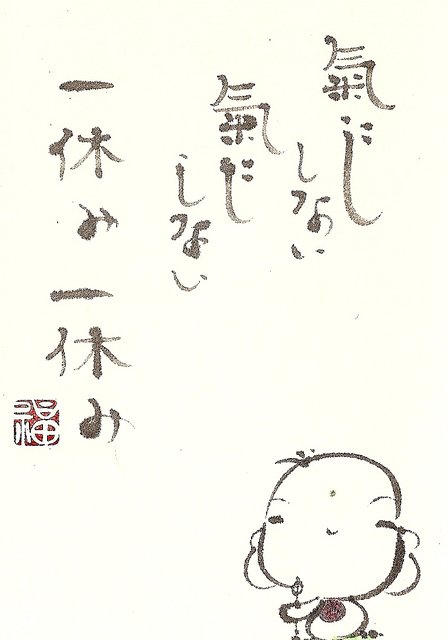 氣にし
しない
氣にし
しない
一休み一休み
福